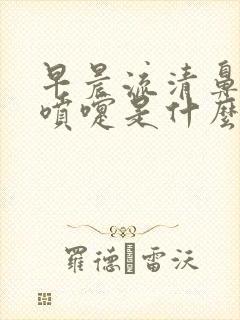 早晨流清鼻
噴嚏是什麼
羅德 雷沃